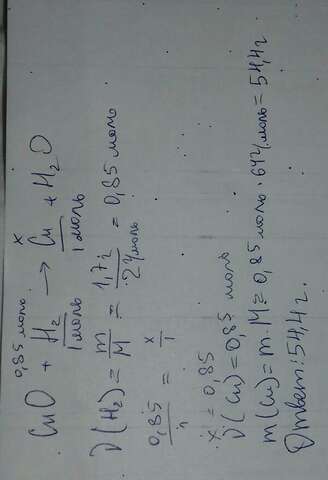 0,85 моль x
CuO + H₂ → Cu + H₂O
1 моль 1 моль
ν(H₂) = m/M = 1,7 г / 2 г/моль = 0,85 моль
0,85/1 = x/1
x = 0,85
ν(Cu) = 0,85 моль
m(Cu) = m · M = 0,85 моль · 64 г/моль = 54,4 г
Ответ: 54,4 г.